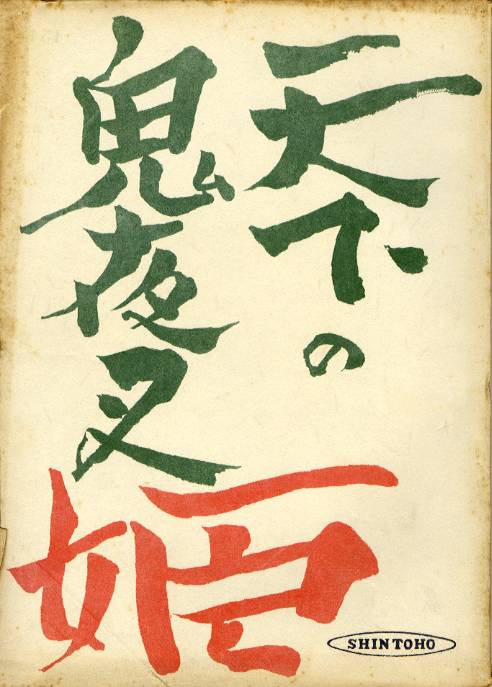 天下の
鬼夜叉
姫
SHINTOHO